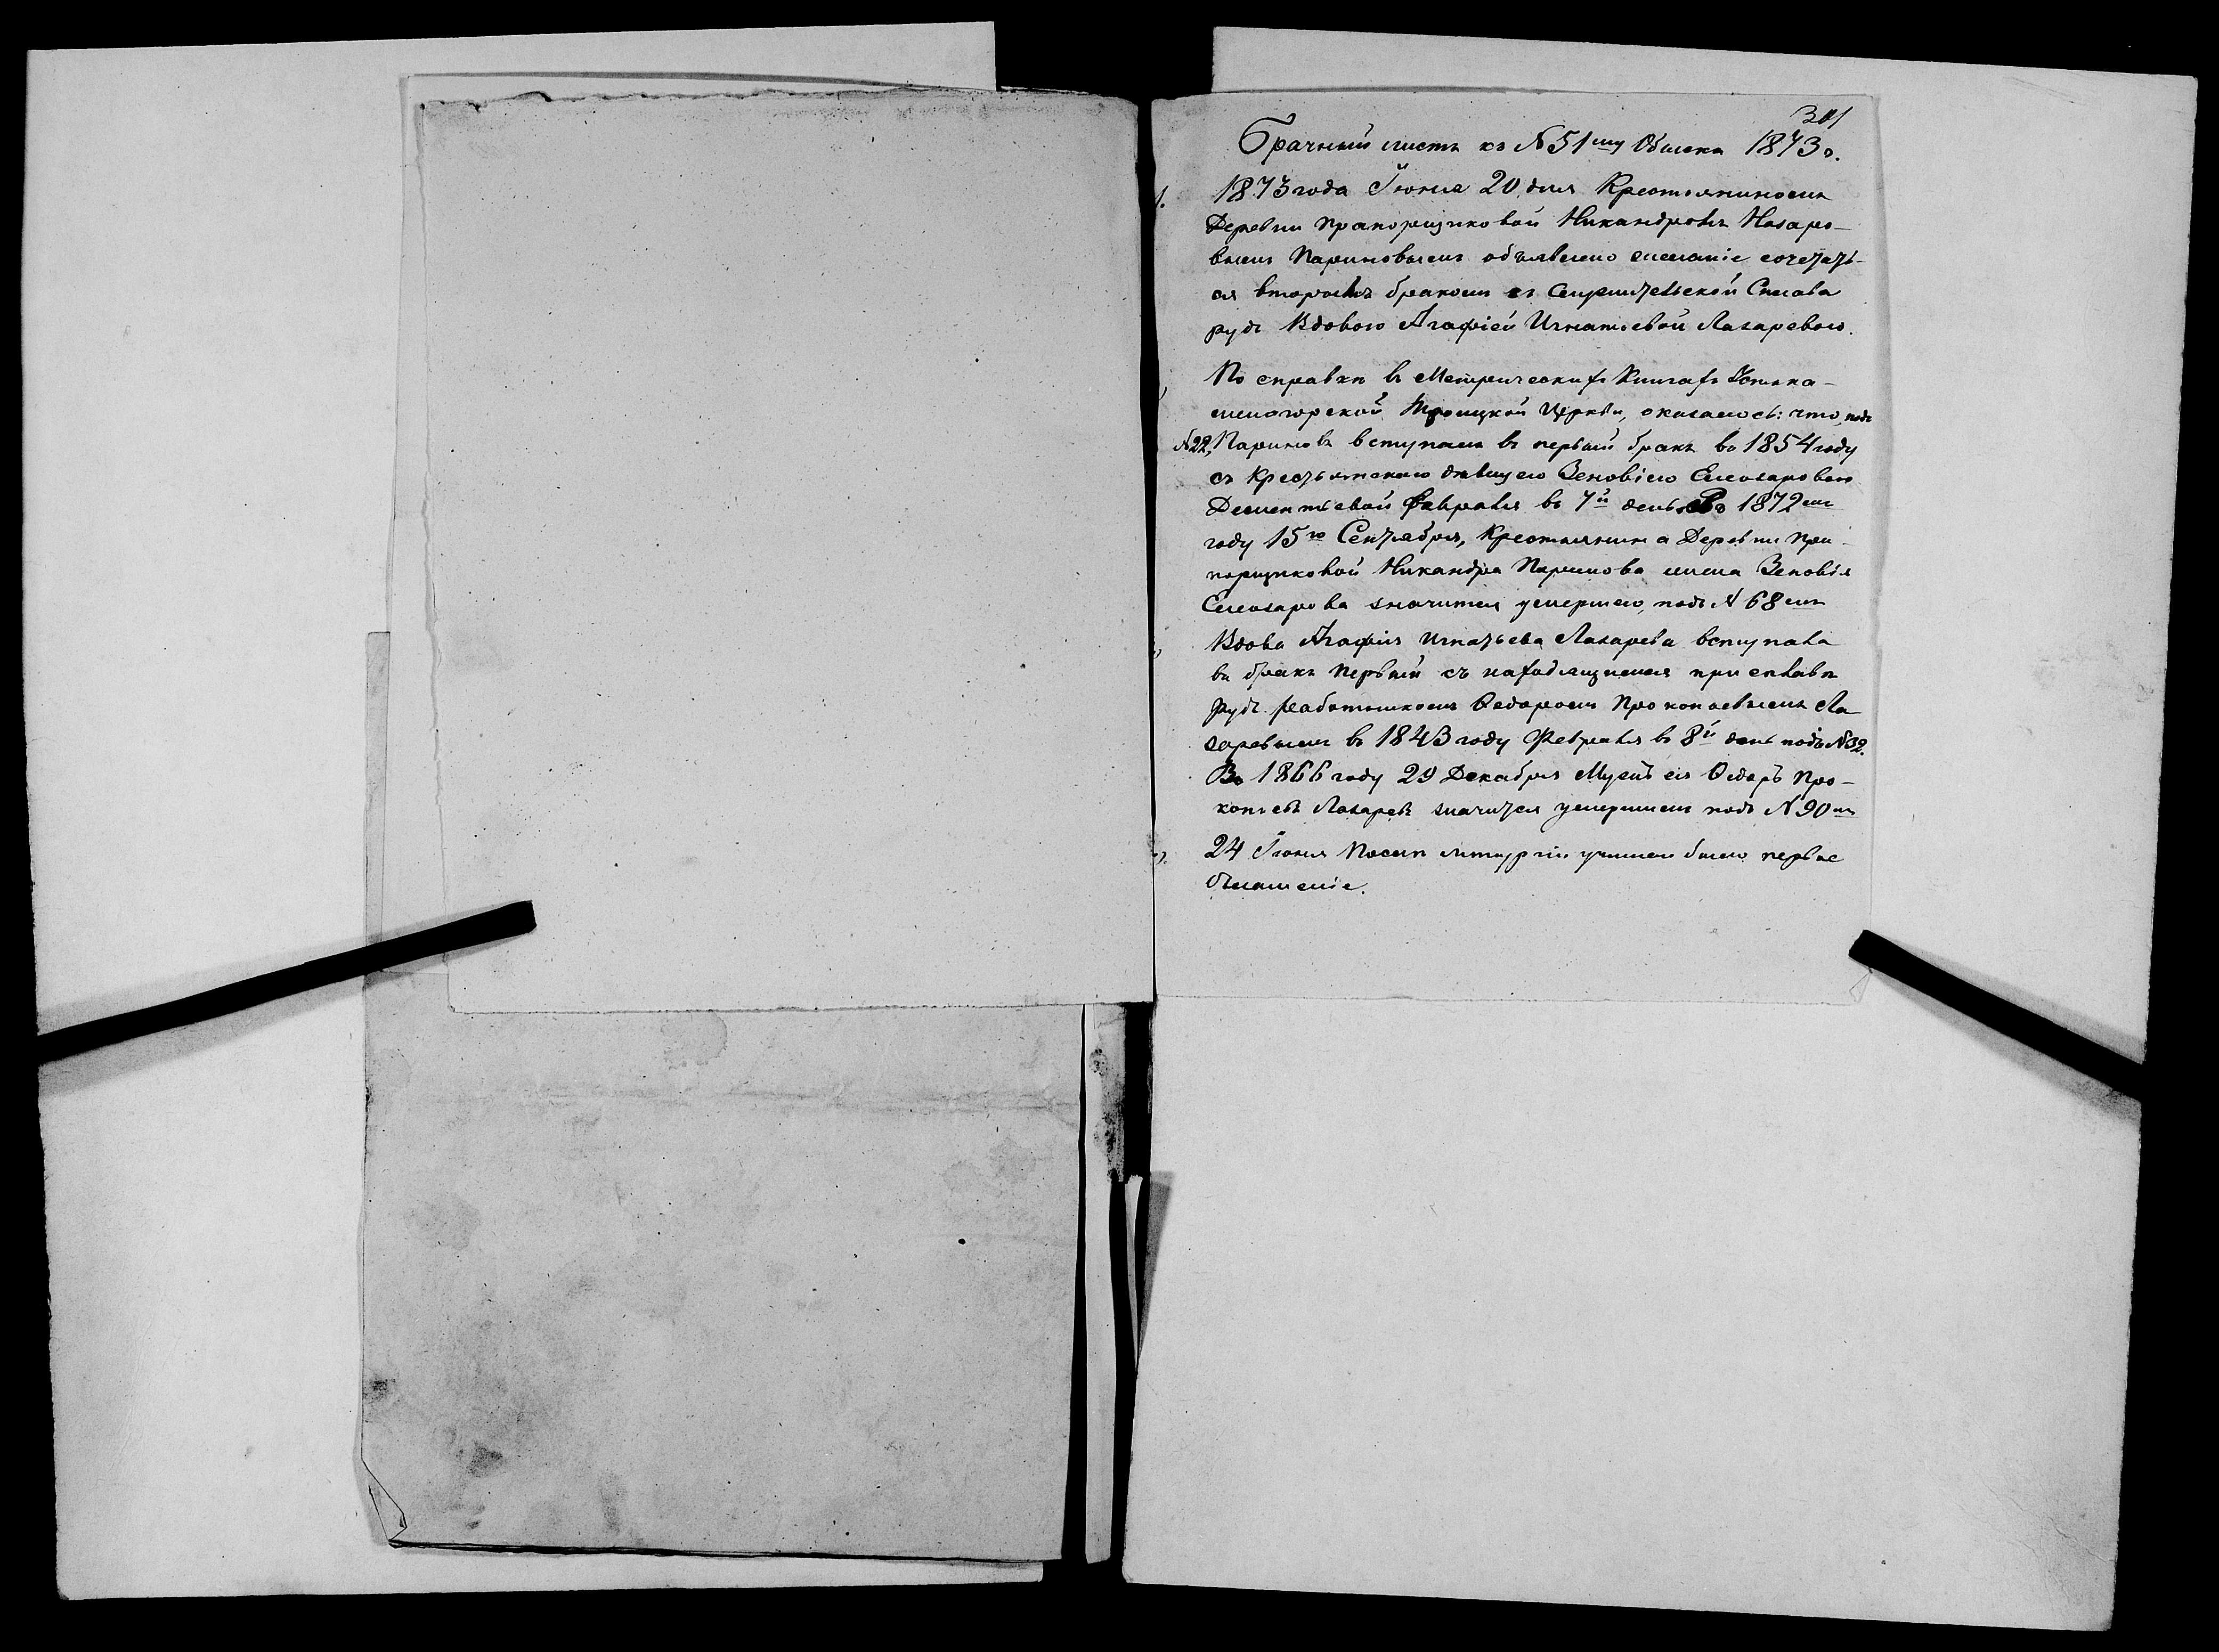 301
Брачный листъ къ №51му Обыска 1873 г.
1. 1873 года Іюня 20 дня Крестьяниномъ
Деревни Прапорщиковой Никандромъ Назаро-
вымъ Париновымъ объявлено желаніе сочетать-
ся вторымъ бракомъ съ Сплава
рудъ Вдовою Агафіей Игнатьевой Лазаревою.
По справкѣ въ Метрическихъ Книгахъ Устька-
меногорской Троицкой Церкви, оказалось: что, подъ
№22, Париновъ вступалъ въ первый бракъ въ 1854 году
съ Крестьянскою дѣвицею Зеновіею Елеозаровою
Дементьевой Февраля въ 7й день. Въ 1872мъ
году 15го Сентября, Крестьянина Деревни Пра-
порщиковой Никандра Паринова жена Зеновія
Елеозарова значится умершею, подъ №68мъ
Вдова Агафія Игнатьева Лазарева вступала
въ бракъ первый съ находящимся при сплавѣ
рудъ работникомъ Ѳедоромъ Прокопьевымъ Ла
заревымъ въ 1843 году Февраля въ 8й день подъ №32.
Въ 1866 году 29 Декабря Мужъ ея Ѳедоръ Про-
копьевъ Лазаревъ значится умершимъ подъ №90мъ
24 Іюня Послѣ литургіи учинено было первое
оглашеніе.